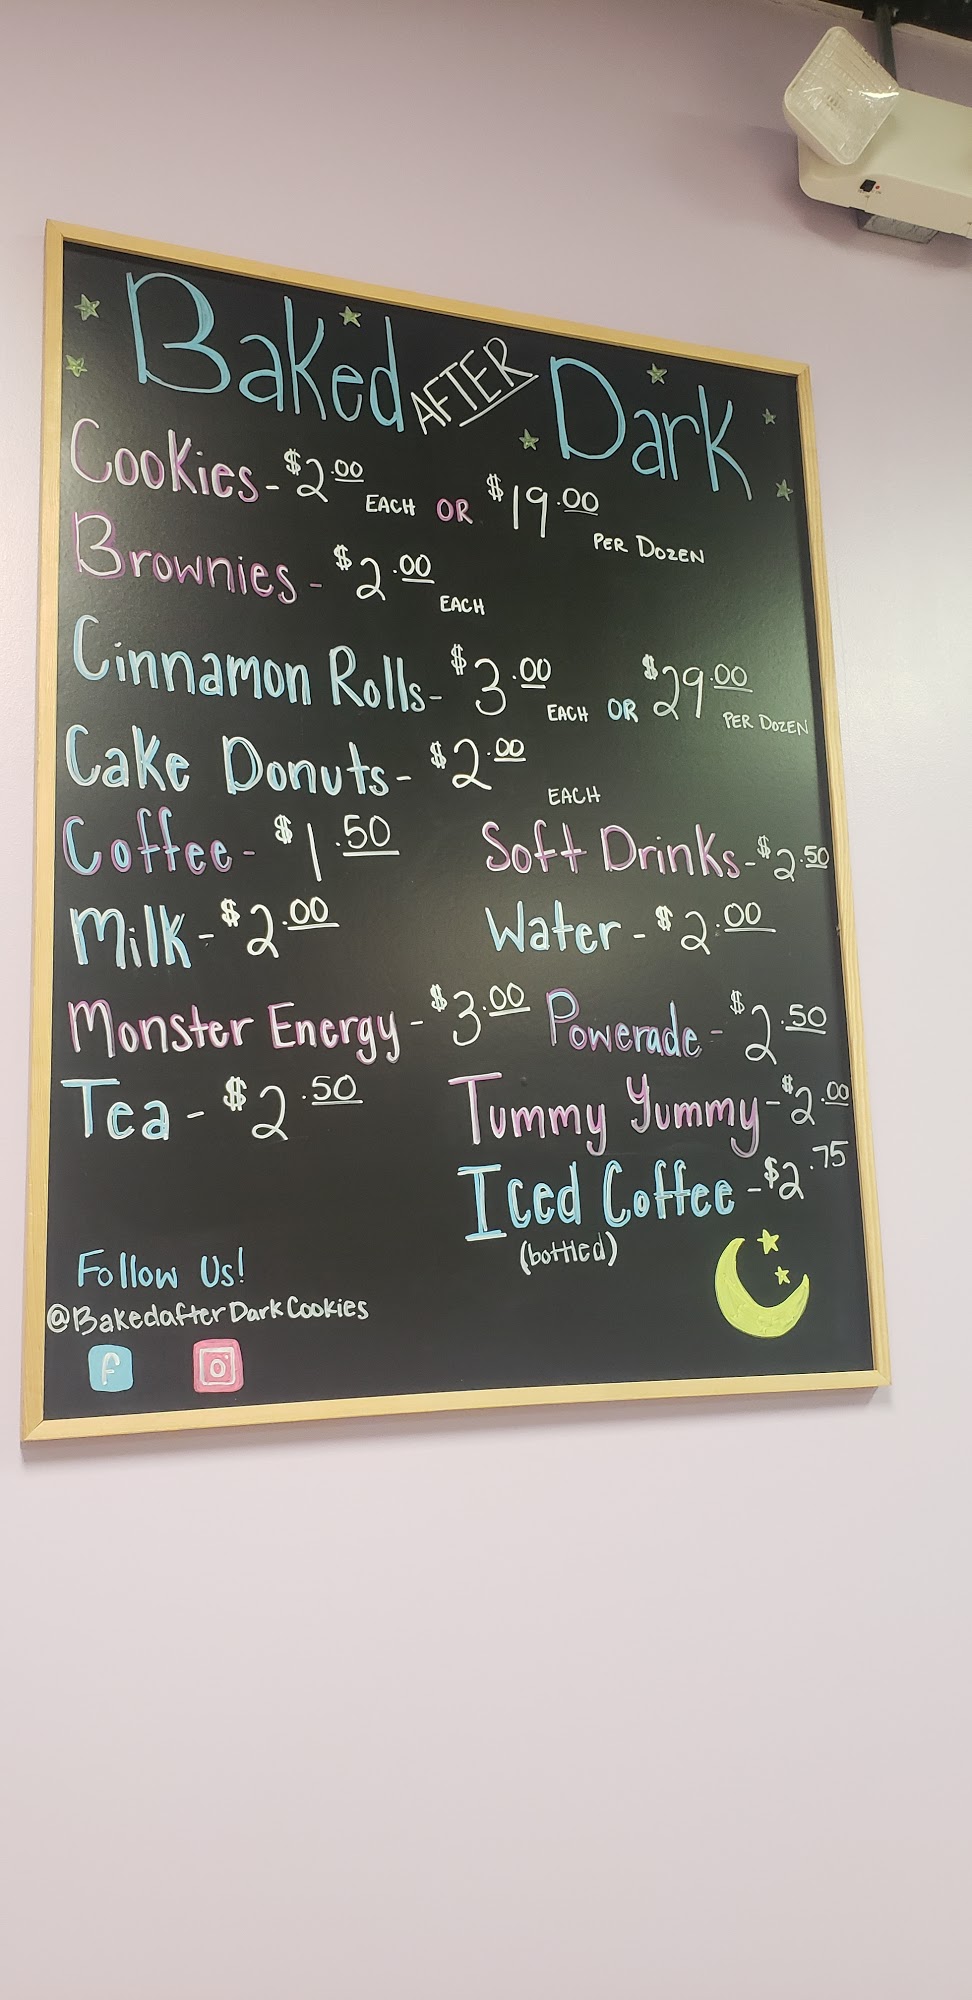 Baked AFTER Dark
Cookies - $2.00 EACH OR $19.00 PER DOZEN
Brownies - $2.00 EACH
Cinnamon Rolls - $3.00 EACH OR $29.00 PER DOZEN
Cake Donuts - $2.00 EACH
Coffee - $1.50 Soft Drinks - $2.50
Milk - $2.00 Water - $2.00
Monster Energy - $3.00 Powerade - $2.50
Tea - $2.50 Tummy Yummy - $2.00
Iced Coffee - $2.75
(bottled)
Follow Us!
@BakedafterDarkCookies
f